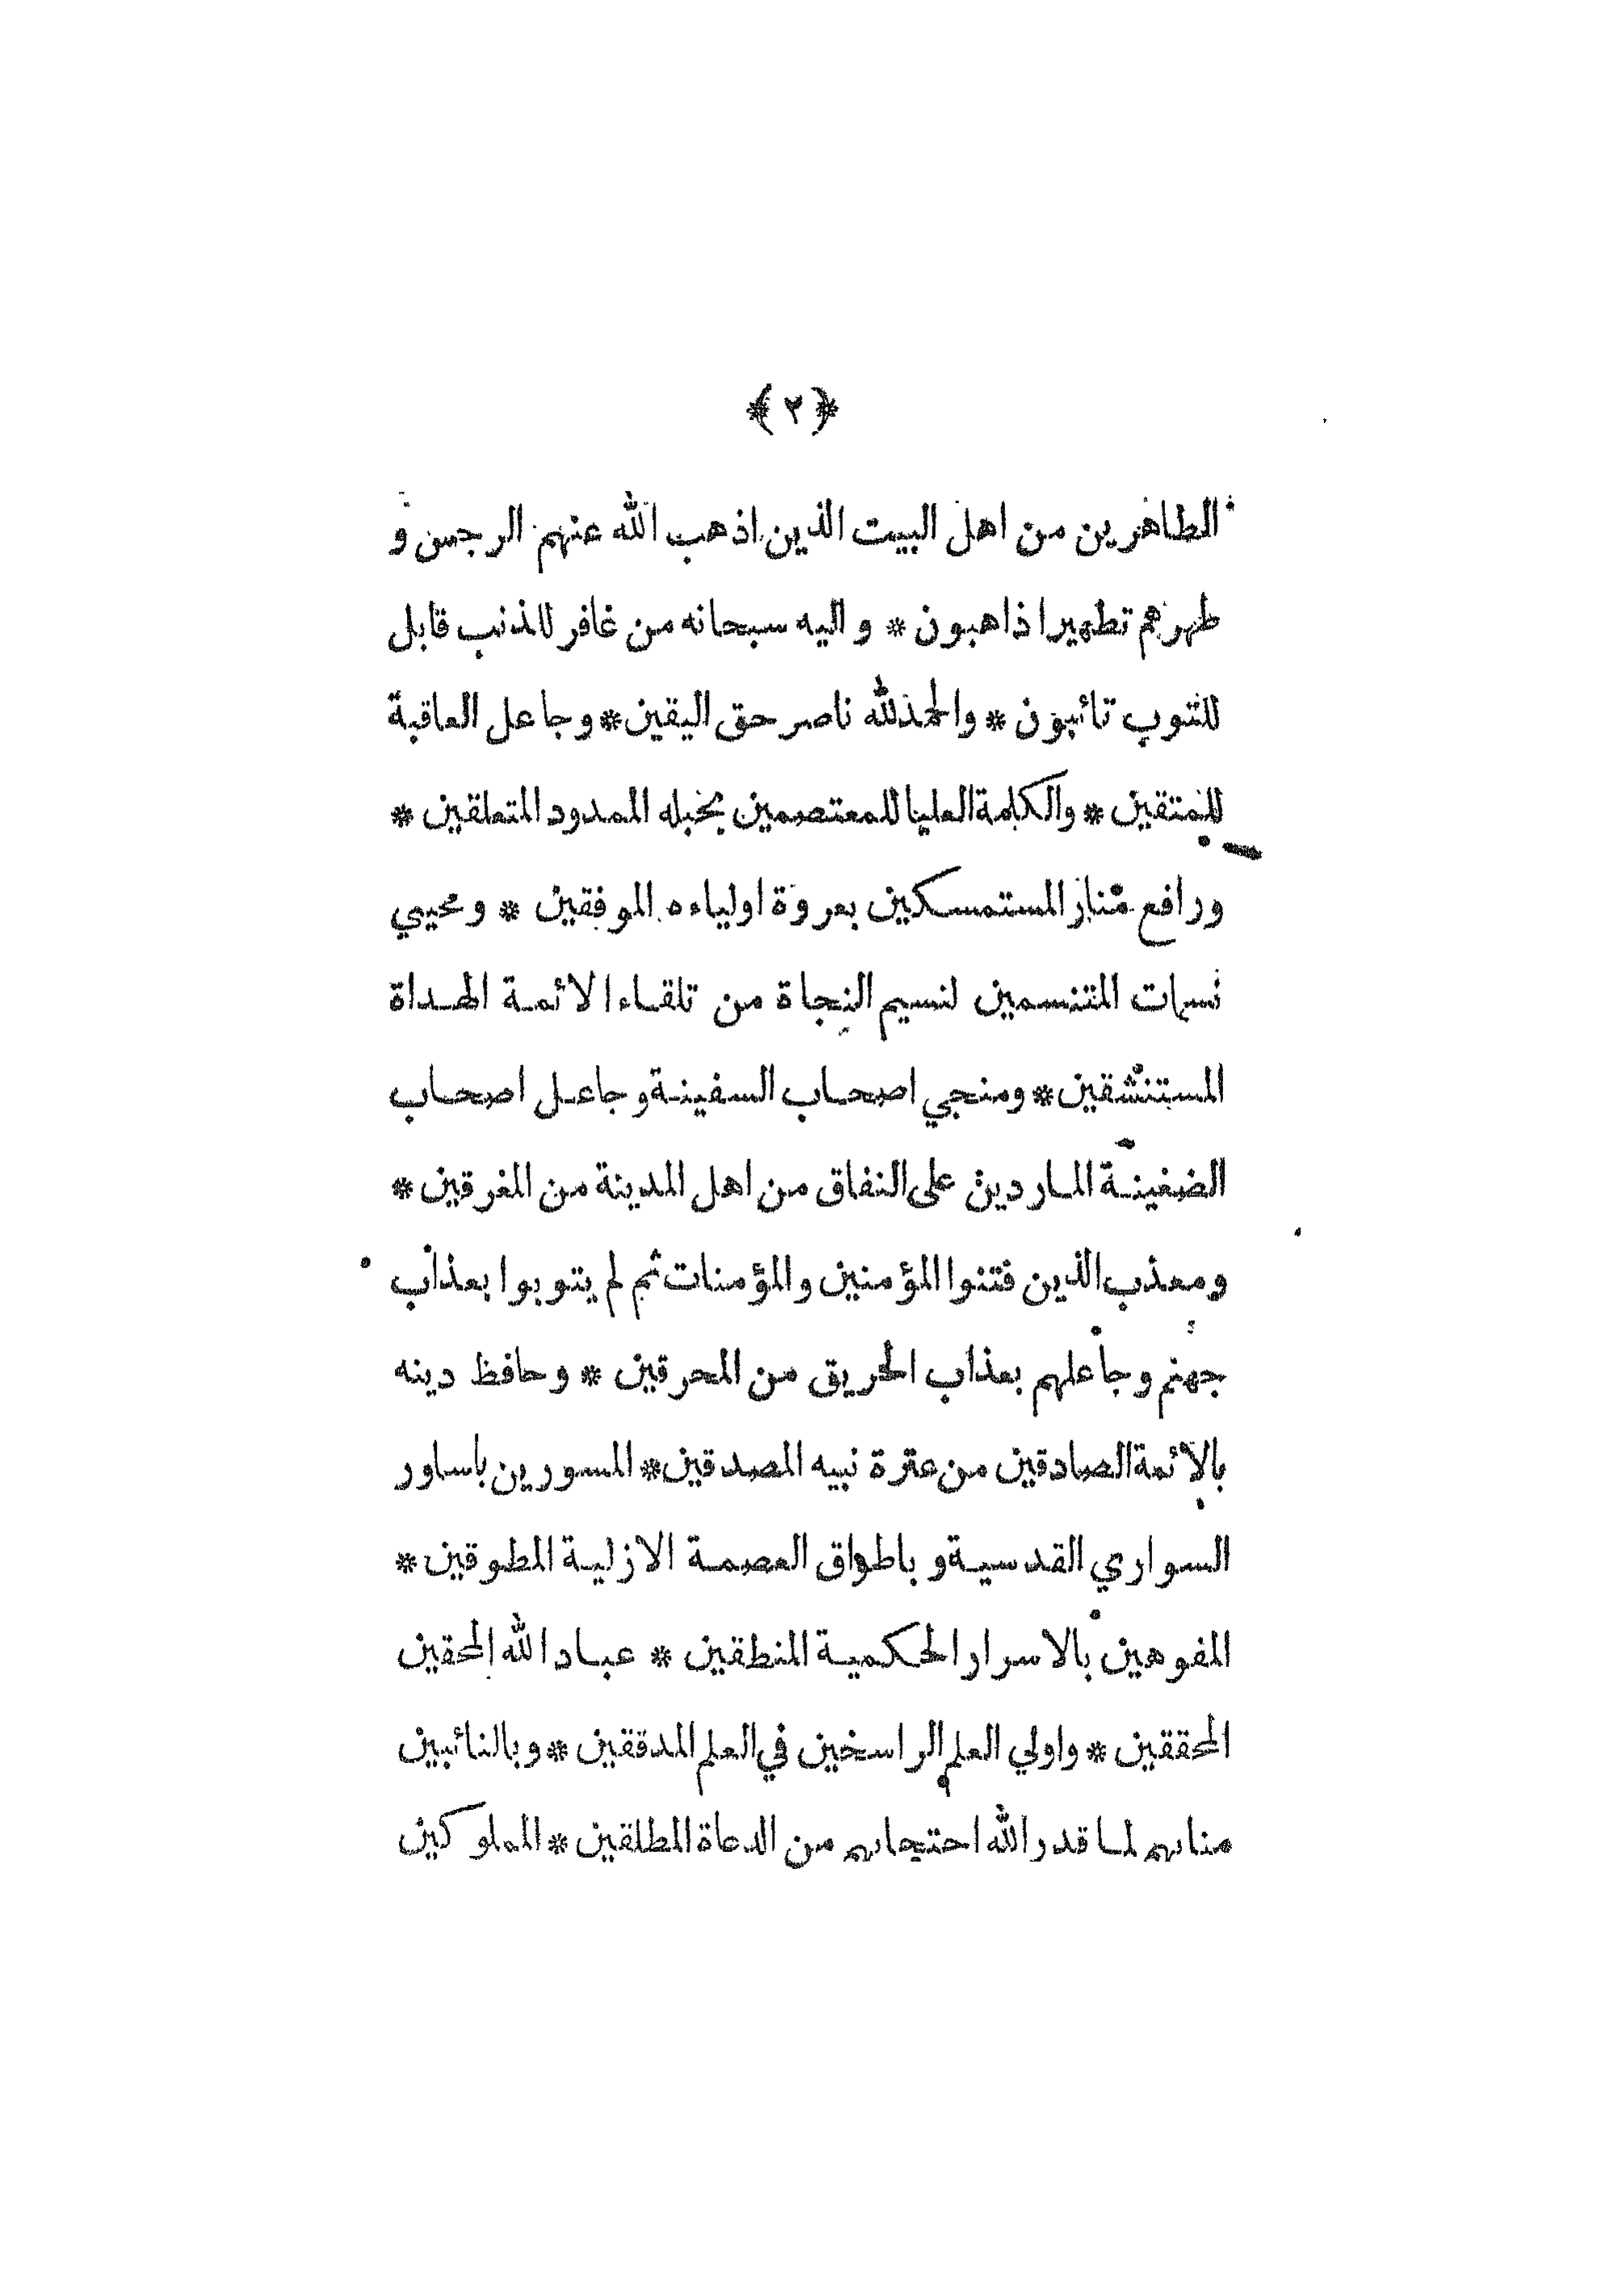 ﴿٢﴾
الطاهرين من اهل البيت الذين اذهب الله عنهم الرجس و
طهرهم تطهيرا ذاهبون * و اليه سبحانه من غافر للذنب قابل
للتوب تائبون * والحمدلله ناصر حق اليقين * وجاعل العاقبة
للمتقين * والكلمة العليا للمعتصمين بحبله الممدود المتعلقين *
ورافع منار المستمسكين بعروة اولياءه الموفقين * و محيي
نسمات المتنسمين لنسيم النجاة من تلقاء الائمة الهداة
المستنشقين * ومنجي اصحاب السفينة و جاعل اصحاب
الضغينة الماردين على النفاق من اهل المدينة من المغرقين *
ومعذب الذين فتنوا المؤمنين والمؤمنات ثم لم يتوبوا بعذاب
جهنم وجاعلهم بعذاب الحريق من المحرقين * وحافظ دينه
بالائمة الصادقين من عترة نبيه المصدقين * المسورين باساور
السواري القدسية و باطواق العصمة الازلية المطوقين *
المفوهين بالاسرار الحكمية المنطقين * عباد الله المحقين
المحققين * واولي العلم الراسخين في العلم المدققين * وبالنائبين
منابهم لما قدر الله احتجابهم من الدعاة المطلقين * المملوكين